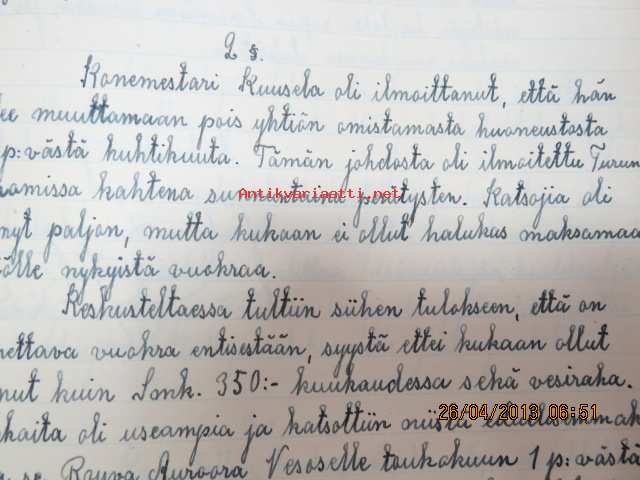 2 §.
Konemestari Kuusela oli ilmoittanut, että hän
ee muuttamaan pois yhtiön omistamasta huoneustosta
p:västä huhtikuuta. Tämän johdosta oli ilmoitettu Turun
nomissa kahtena sunnuntaina perätysten. Katsojia oli
nyt paljon, mutta kukaan ei ollut halukas maksamaa
ölle nykyistä vuokraa.
Keskusteltaessa tultiin siihen tulokseen, että on
nettava vuokra entisestään, syystä ettei kukaan ollut
nut kuin Smk. 350:- kuukaudessa sekä vesiraha.
kaita oli useampia ja katsottiin niistä edullisimmak
se Rouva Auroora Vesoselle toukokuun 1 p:västä
Antikvariaatti.net
26/04/2013 06:51